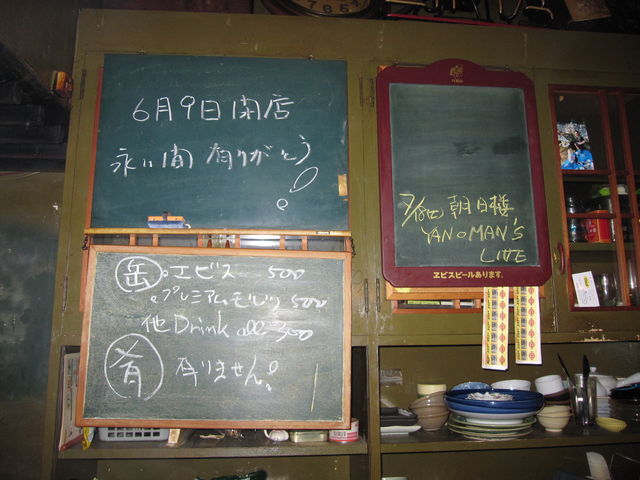 6月9日閉店
永い間 有りがとう!
缶 。エビス 500
。プレミアムモルツ 500
他Drink all 300
肴 有りません!
YEBISU
朝日楼
YANOMAN'S
LIVE
ヱビスビールあります。